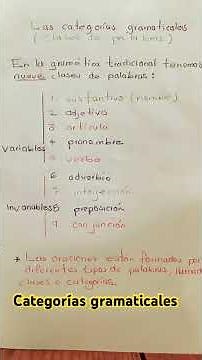 Las categorías gramaticales
(clases de palabras)
En la gramática tradicional tenemos
nueve clases de palabras:
1. sustantivo (nombre)
2. adjetivo
3. artículo
4 pronombre
Variables
5 verbo
6 adverbio
7. interjección
Invariables 8 preposición
9. conjunción
* Las oraciones están formadas por
diferentes tipos de palabras, llamadas
clases o categorías.
Categorías gramaticales